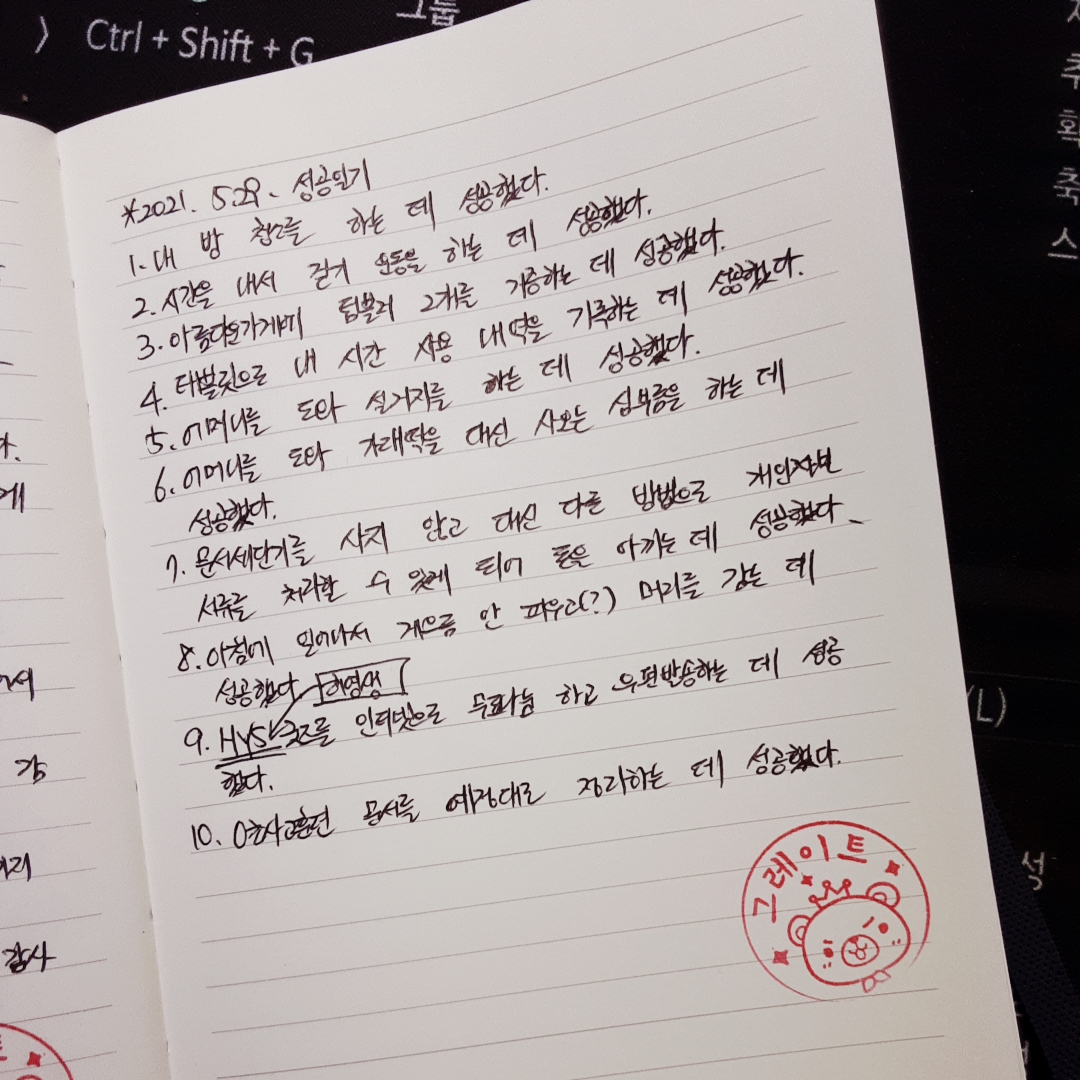 그룹
〉 Ctrl + Shift + G
*2021. 5.29. 성공일기
1. 내 방 청소를 하는 데 성공했다.
2. 시간을 내서 걷기 운동을 하는 데 성공했다.
3. 아름다운가게에 텀블러 2개를 기증하는 데 성공했다.
4. 태블릿으로 내 시간 사용 내역을 기록하는 데 성공했다.
5. 어머니를 도와 설거지를 하는 데 성공했다.
6. 어머니를 도와 가래떡을 대신 사오는 심부름을 하는 데
성공했다.
7. 문서세단기를 사지 않고 대신 다른 방법으로 개인정보
서류를 처리할 수 있게 되어 돈을 아끼는 데 성공했다.
8. 아침에 일어나서 게으름 안 피우고(?) 머리를 감는 데
성공했다.
허영생
9. HYS 굿즈를 인터넷으로 무료나눔 하고 우편발송하는 데 성공
했다.
10. 사고훈련 문서를 예정대로 정리하는 데 성공했다.
그레이트
다.
게
감
감사
트
추
확
축
스
(L)
석